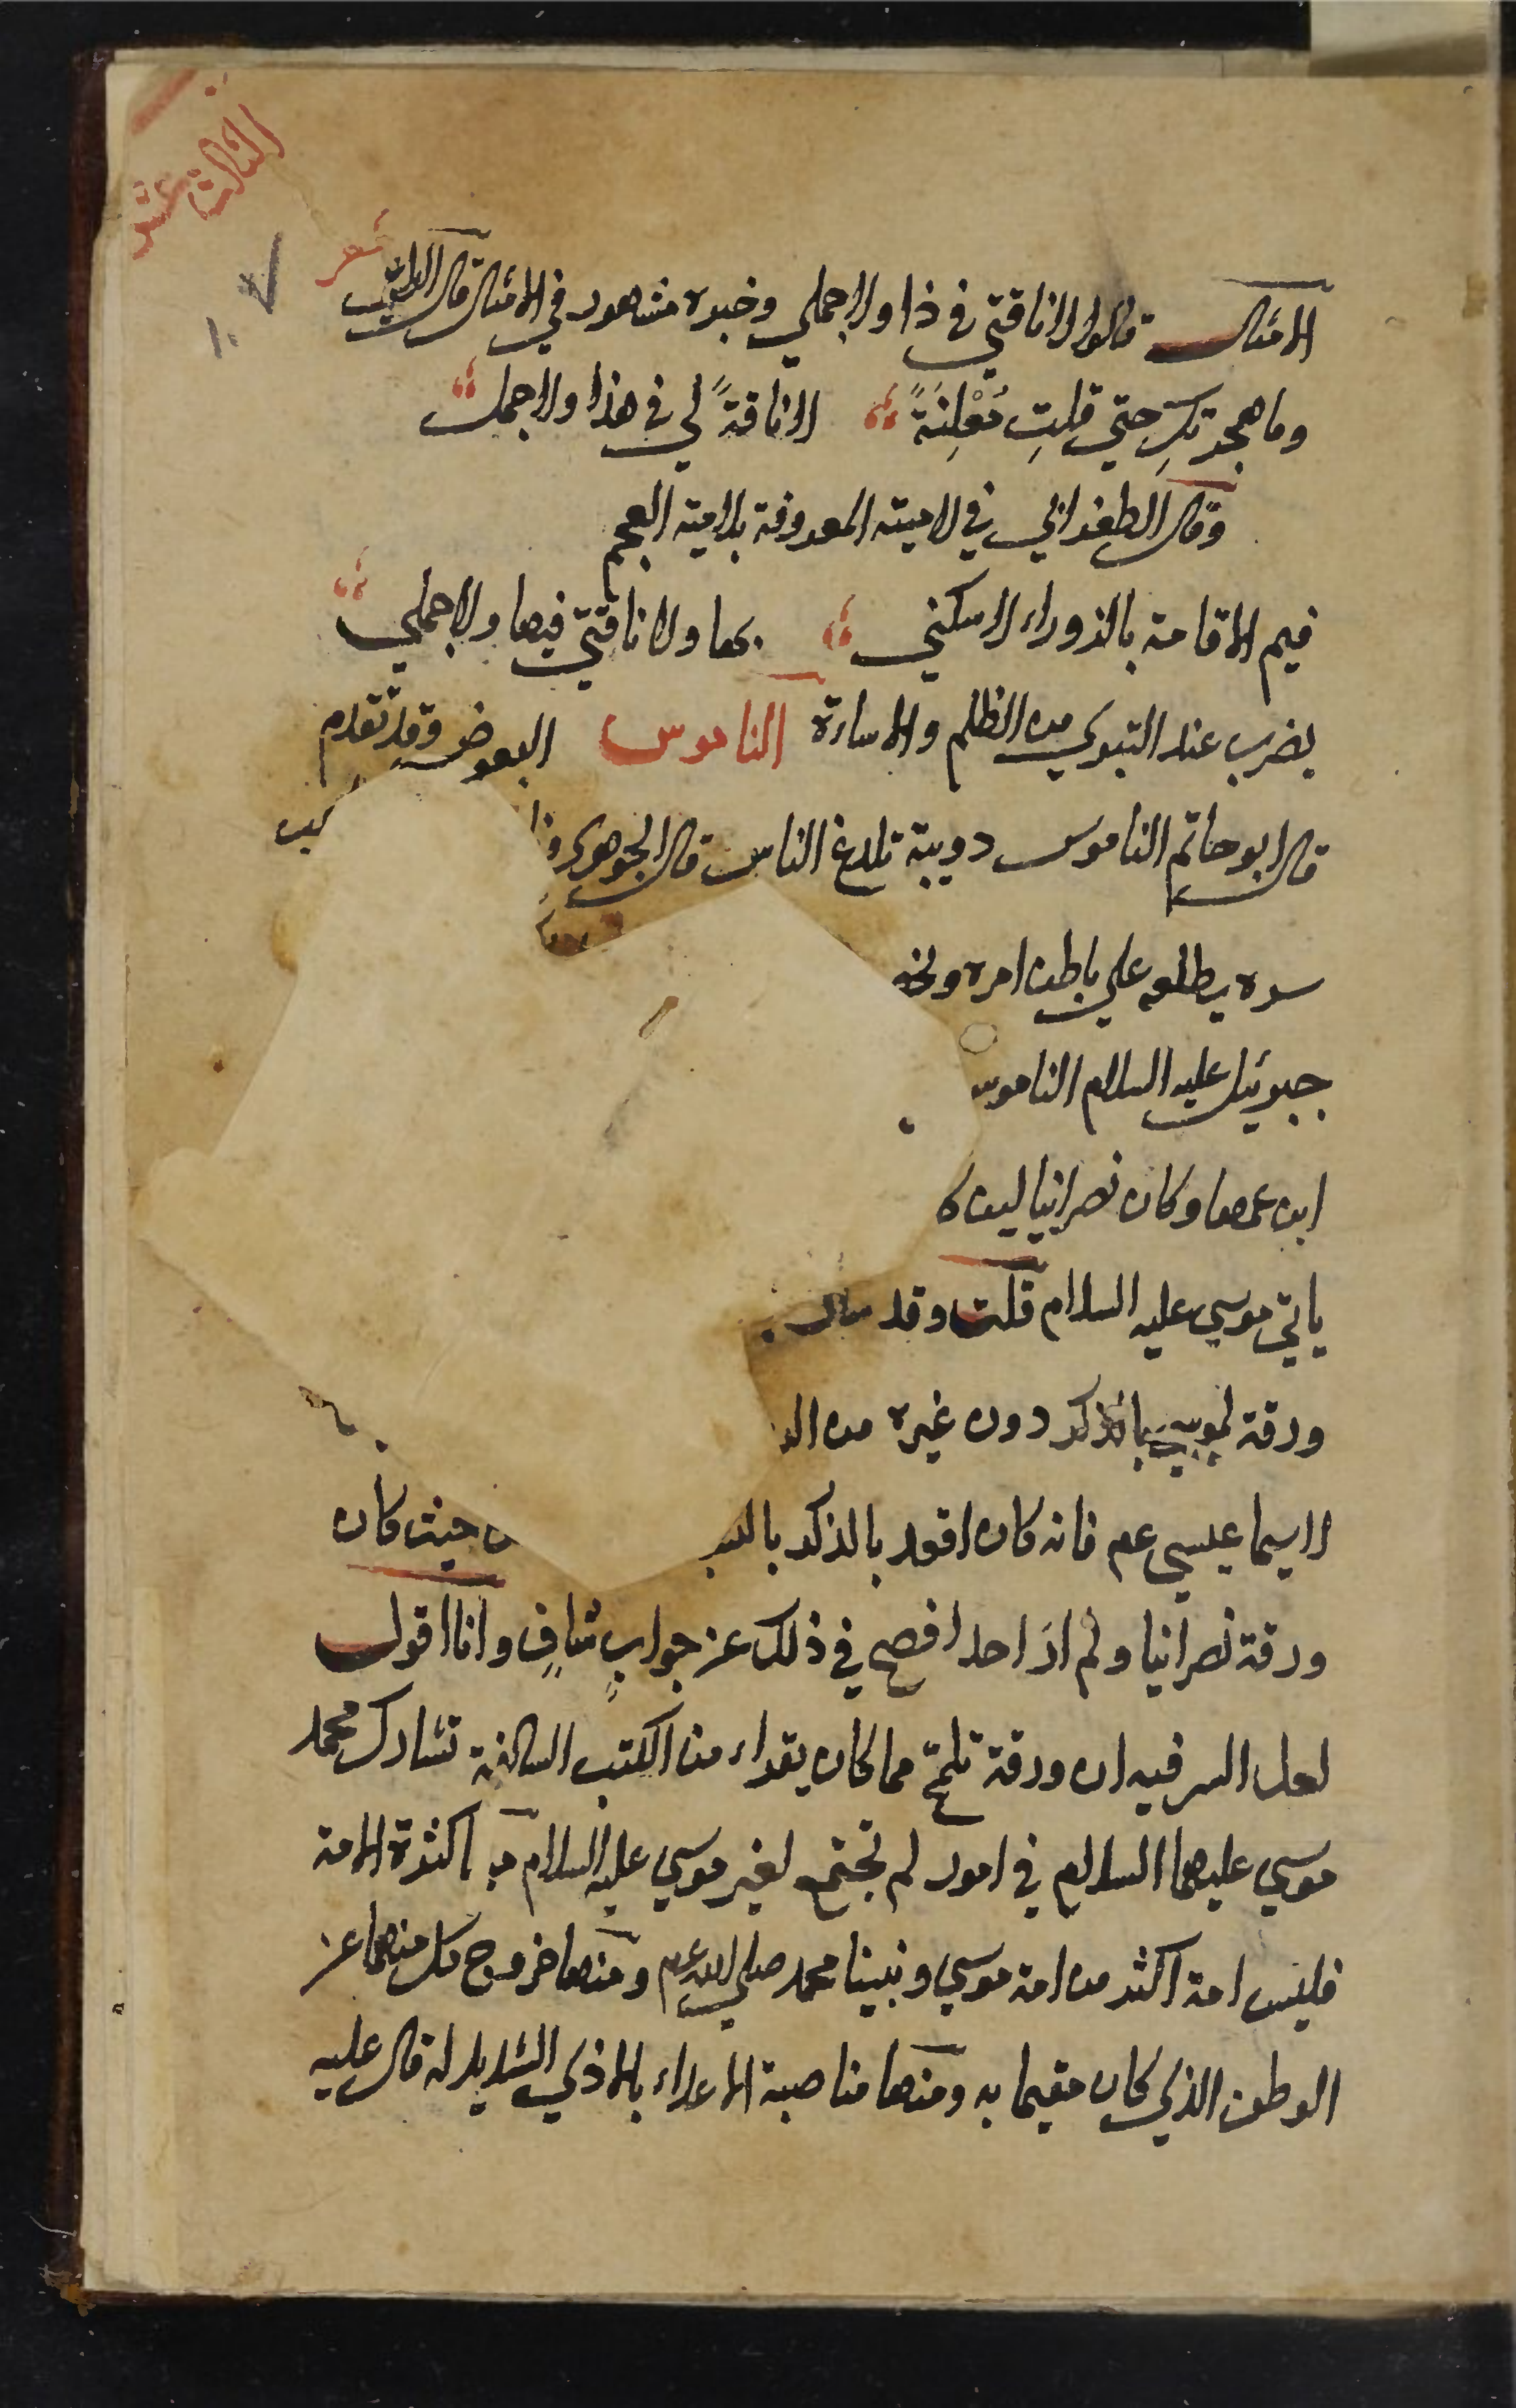 الثالث عشر
١٠٧
الامثال قالوا لا ناقتي في ذا ولا جملي وخبره مشهور في الامثال قال شعر
وما هجرتكِ حتي قلتِ مُعْلِنَةً لا ناقةً لي في هذا ولا جمل
وقال الطغرائي في لاميته المعروفة بلامية العجم
فيم الاقامة بالزوراء لا سكني بها ولا ناقتي فيها ولا جملي
يضرب عند التبري من الظلم والاساءة الناموس البعوض وقد تقدم
قال ابو حاتم الناموس دويبة تلدغ الناس قال الجوهري
سره يطلعه علي باطن امره
جبرئيل عليه السلام الناموس
ابن عمها وكان نصرانيا لين
ياتي موسي عليه السلام قلت وقد
ورقة لموسي بالذكر دون غيره من
لاسيما عيسي عم فانه كان اقعد بالذكر حيث كان
ورقة نصرانيا ولم ارَ احدا افصح في ذلك عن جوابٍ شافٍ وانا اقول
لعل السر فيه ان ورقة تلمّح مما كان يقراء من الكتب السالفة تشارك محمد
موسي عليهما السلام في امور لم تجتمع لغير موسي عليه السلام كثرة الامة
فليس امة اكثر من امة موسي ونبينا محمد صلي الله عم ومنها خروج كل منهما عن
الوطن الذي كان مقيما به ومنها مناصبة الاعداء بالاذي الشديد له قال عليه